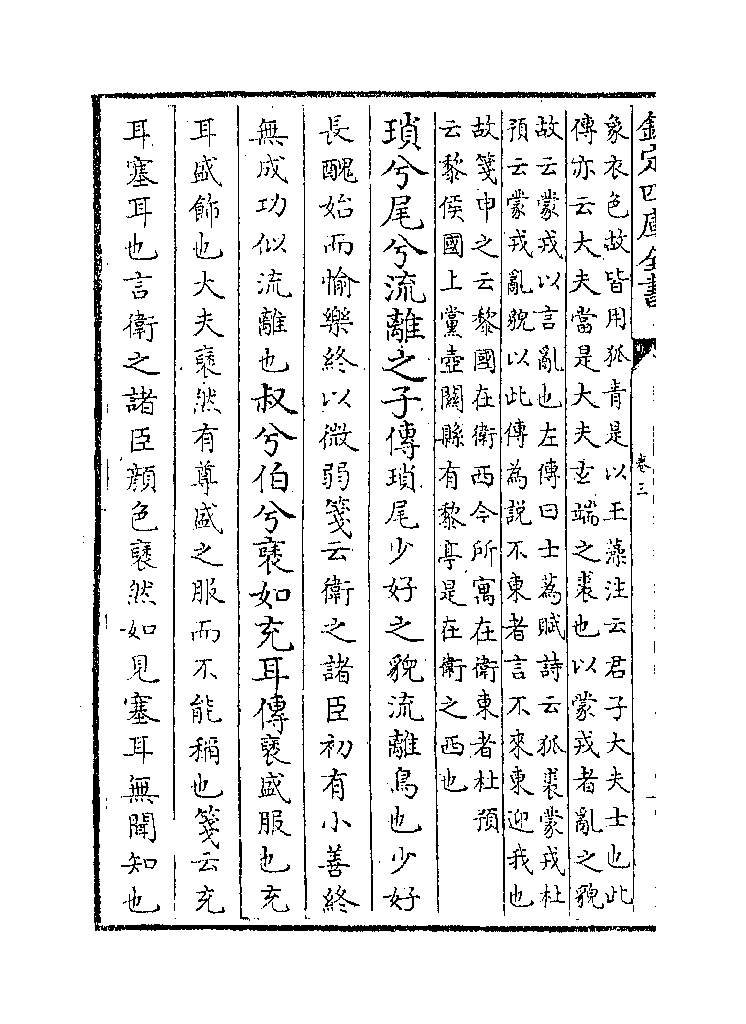 欽定四庫全書
卷三
象衣色故皆用狐青是以玉藻注云君子大夫士也此
傳亦云大夫當是大夫玄端之裘也以蒙戎者亂之貌
故云蒙戎以言亂也左傳曰士蒍賦詩云狐裘蒙戎杜
預云蒙戎亂貌以此傳為說不東者言不來東迎我也
故箋申之云黎國在衛西今所寓在衛東者杜預
云黎侯國上黨壺關縣有黎亭是在衛之西也
瑣兮尾兮流離之子傳瑣尾少好之貌流離鳥也少好
長醜始而愉樂終以微弱箋云衛之諸臣初有小善終
無成功似流離也叔兮伯兮褎如充耳傳褎盛服也充
耳盛飾也大夫褎然有尊盛之服而不能稱也箋云充
耳塞耳也言衛之諸臣顔色褎然如見塞耳無聞知也